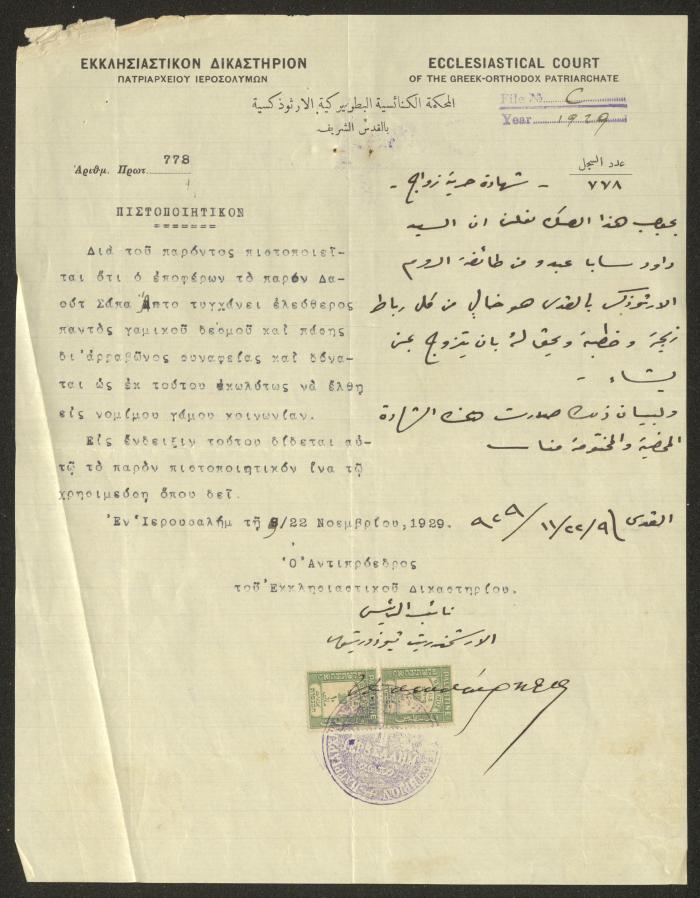 ΕΚΚΛΗΣΙΑΣΤΙΚΟΝ ΔΙΚΑΣΤΗΡΙΟΝ
ΠΑΤΡΙΑΡΧΕΙΟΥ ΙΕΡΟΣΟΛΥΜΩΝ
ECCLESIASTICAL COURT
OF THE GREEK-ORTHODOX PATRIARCHATE
المحكمة الكنائسية البطريركية الارثوذكسية
بالقدس الشريف
File No. C
Year 1929
Ἀριθμ. Πρωτ. 778
عدد السجل
٧٧٨
- شهادة حرية زواج -
ΠΙΣΤΟΠΟΙΗΤΙΚΟΝ
Διά τοῦ παρόντος πιστοποιεῖ-
ται ὅτι ὁ ἐποφέρων τό παρόν Δα-
ούτ Σάπα Ἄπτο τυγχάνει ἐλεύθερος
παντός γαμικοῦ δεσμοῦ καί πάσης
δι'ἀρραβῶνος συναφείας καί δύνα-
ται ὡς ἐκ τούτου ἀκωλύτως νά ἔλθῃ
εἰς νομίμου γάμου κοινωνίαν.
Εἰς ἔνδειξιν τούτου δίδεται αὐ-
τῷ τό παρόν πιστοποιητικόν ἵνα τῷ
χρησιμεύσῃ ὅπου δεῖ.
Ἐν Ἱερουσαλήμ τῇ 9/22 Νοεμβρίου,1929.
بموجب هذا الصك نعلن ان السيد
داود سابا عبدو من طائفة الروم
الارثوذكس بالقدس هو خالي من كل رباط
زيجة و خطبة ويحق له بان يتزوج بمن
يشاء -
ولبيان ذلك صدرت هذه الشهادة
الممضية والمختومة منا
القدس ٩/٢٢/١١/٩٢٩
Ὁ Ἀντιπρόεδρος
τοῦ Ἐκκλησιαστικοῦ Δικαστηρίου.
نائب الرئيس
الارشمندريت
PALESTINE
PALESTINE